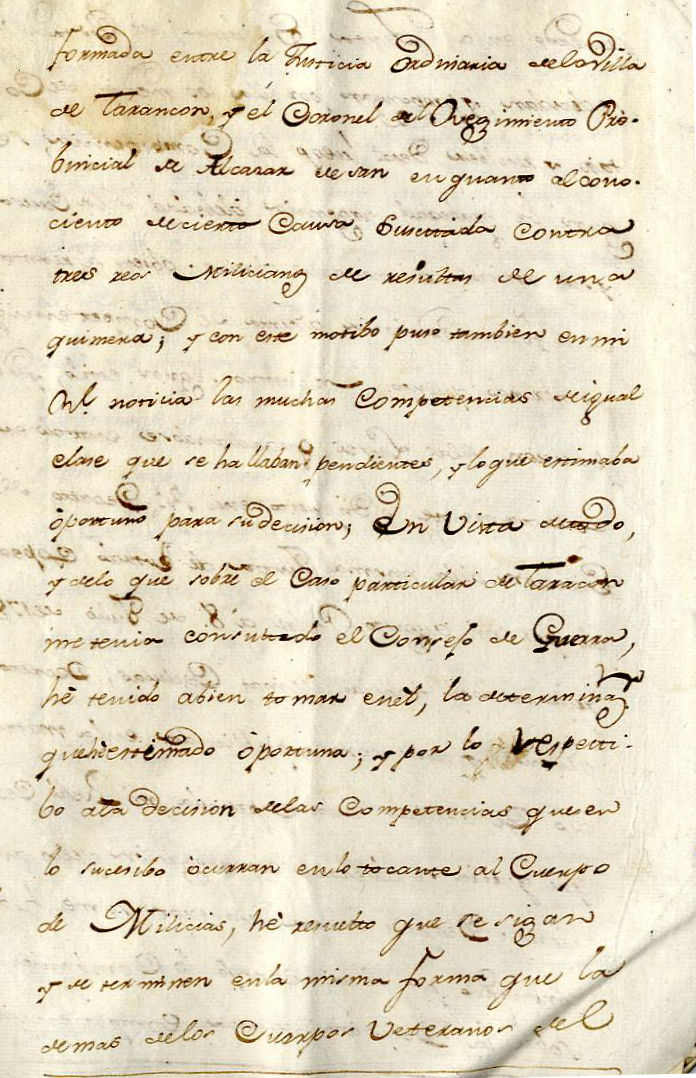 formada entre la Justicia Ordinaria dela Villa
de Tarancon, y el Coronel del Regimiento Pro-
bincial de Alcazar de san en quanto al cono-
ciento de cierta Causa Suscitada contra
tres reos Milicianos de resultas de una
quimera; y con este motibo puso tambien en mi
Rl. noticia las muchas Competencias de igual
clase que se hallaban pendientes, y lo que estimaba
oportuno para su decision; En Vista de todo,
y delo que sobre el Caso particular de Taracon
me tenia consultado el Consejo de Guerra,
hè tenido abien tomar en èl, la determinaz.n
que hè estimado oportuna; y por lo respecti-
bo ala decision delas Competencias que en
lo sucesibo ocurran en lo tocante al Cuerpo
de Milicias, hè resuelto que se sigan
y se terminen en la misma forma que la
demas delos Cuerpos Veteranos del